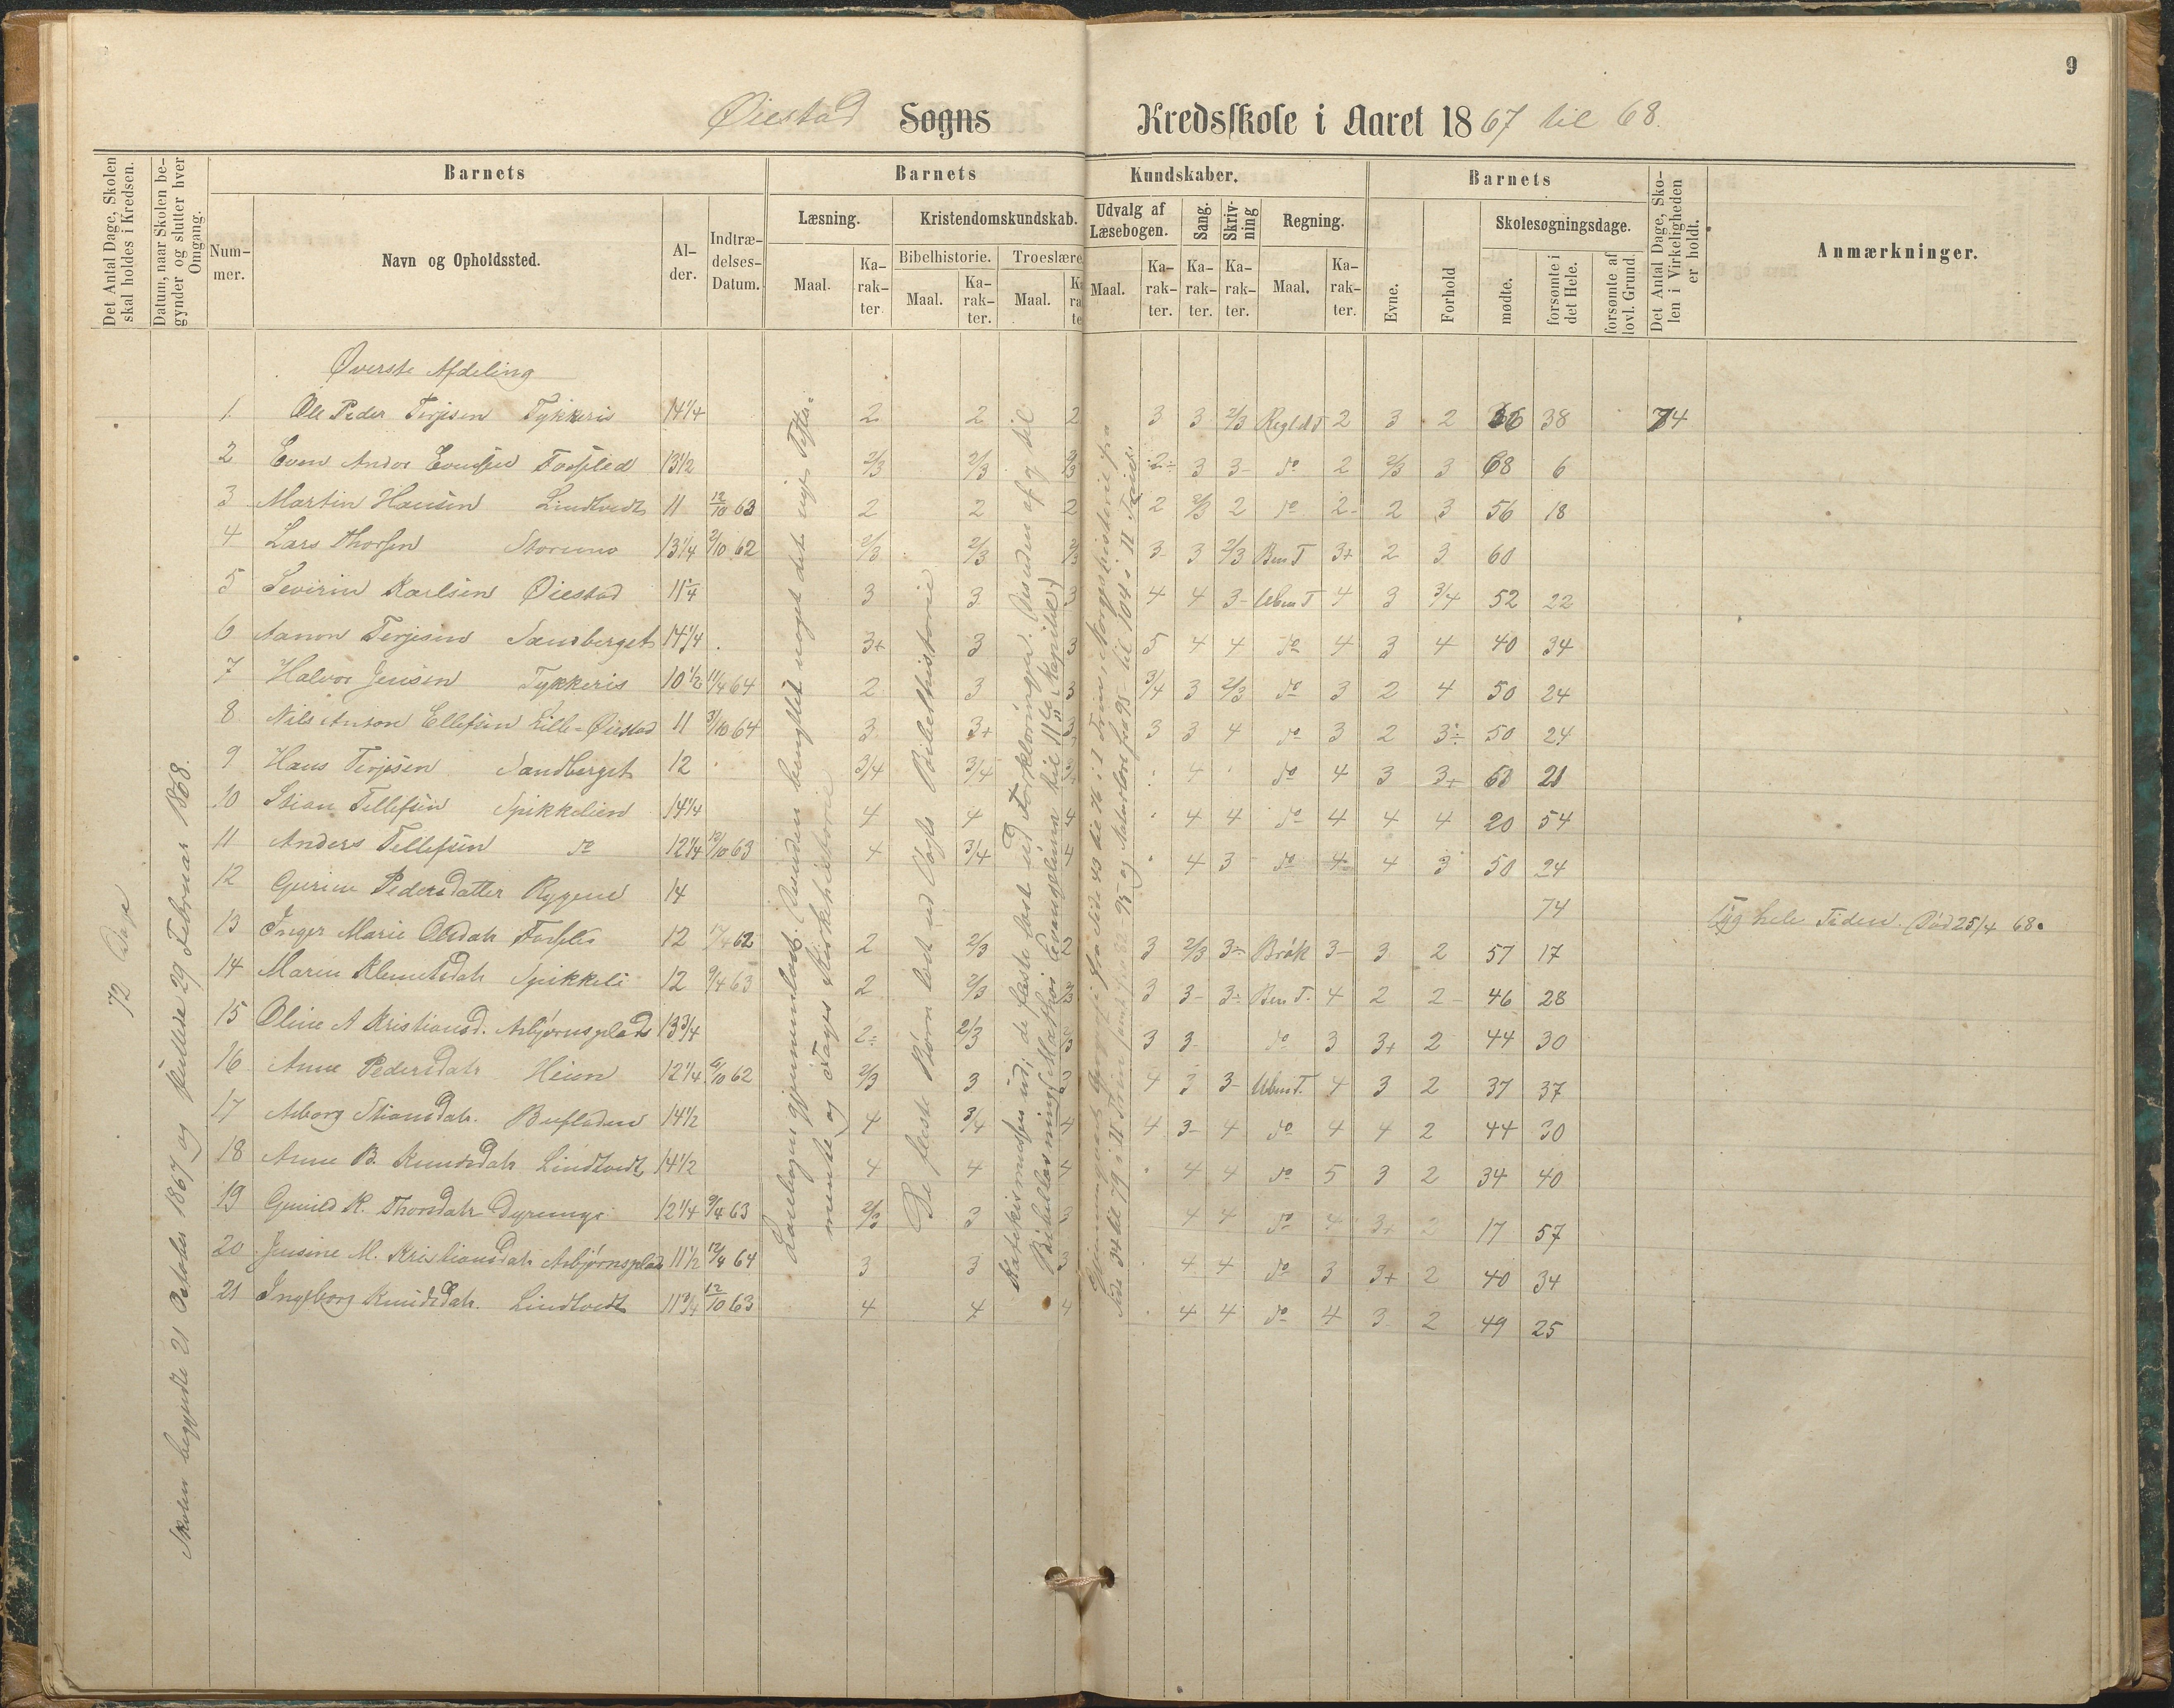 9
Øiestad Sogns Kredsskole i Aaret 1867 til 68.
Det Antal Dage, Skolen skal holdes i Kredsen.
Datum, naar Skolen begynder og slutter hver Omgang.
Barnets
Barnets Kundskaber.
Barnets
Det Antal Dage, Skolen i Virkeligheden er holdt.
Anmærkninger.
Nummer.
Navn og Opholdssted.
Alder.
Indtrædelses-Datum.
Læsning.
Kristendomskundskab.
Udvalg af Læsebogen.
Sang.
Skrivning
Regning.
Evne.
Forhold
Skolesøgningsdage.
Bibelhistorie.
Troeslære
Maal.
Karakter.
mødte.
forsømte i det Hele.
forsømte af lovl. Grund.
72 Dage
Skolen begyndte 21 Oktober 1867 og sluttede 29 Februar 1868.
Øverste Afdeling
1. Ole Peder Terjesen Tykkeris 14 1/4 2 2 2 3 3 2/3 Regl d T 2 3 2 36 38 74
2 Even Andor Evensen Fosseled 13 1/2 2/3 2/3 2/3 2÷ 3 3- do 2 2/3 3 68 6
3 Martin Hansen Lindtvedt 11 12/10 63 2 2 2 2 2/3 2 do 2- 2 3 56 18
4 Lars Thorsen Storemo 13 1/4 2/10 62 2/3 2/3 2/3 3- 3 2/3 Ben T 3+ 2 3 60
5 Severin Karlsen Øiestad 11 1/4 3 3 3 4 4 3- Uben T 4 3 3/4 52 22
6 Aanon Terjesen Sandberget 14 1/4 3+ 3 3 5 4 4 do 4 3 4 40 34
7 Halvor Jensen Tykkeris 10 1/2 11/4 64 2 3 3 3/4 3 2/3 do 3 2 4 50 24
8. Nils Anton Ellefsen Lille-Øiestad 11 3/10 64 3 3+ 3 3 3 4 do 3 2 3÷ 50 24
9 Hans Terjesen Sandberget 12 3/4 3/4 4 do 4 3 3+ 21
10 Stian Tellefsen Spikkelien 14 1/4 4 4 4 4 4 do 4 4 4 20 54
11 Anders Tellefsen do 12 1/4 12/10 63 4 3/4 4 4 3 do 4 4 3 50 24
12 Gurine Pedersdatter Rygene 14 74 Syg hele Tiden. Død 25/4 68.
13 Inger Marie Olsdatr 12 17/4 62 2 2/3 2 3 2/3 3- Brøk 3- 3 2 57 17
14 Maren Klemetsdatr Spikkeli 12 9/4 63 2 2/3 2/3 3 3- 3÷ Ben T. 4 2 2- 46 28
15 Oline A Kristiansd. Asbjørnsplads 13 3/4 2÷ 2/3 3 3 3- do 3 3+ 2 44 30
16 Anne Pedersdatr Heien 12 1/4 6/10 62 2/3 3 3 4 3 3- Uben T. 4 3 2 37 37
17 Asborg Stiansdatr. 14 1/2 4 3/4 4 4 3- 4 do 4 4 2 44 30
18 Anne B. Knudsdatr Lindtvedt 14 1/2 4 4 4 4 4 do 5 3 2 34 40
19 Gunild K. Thorsdatr 12 1/4 9/4 63 2/3 3 3 4 4 do 4 3+ 2 17 57
20 Jensine M. Kristiansdatr Asbjørnsplads 11 1/2 12/4 64 3 3 3 4 4 do 3 3+ 2 40 34
21 Ingeborg Knudsdatr. Lindtvedt 11 3/4 12/10 63 4 4 4 4 4 do 4 3 2 49 25
Læsebogen gjennemlæst. Desuden benyttet noget det nye Testamente og Vogts Kirkehistorie
De fleste Børn læst ud Vogts Bibelhistorie
Katekismussen ud; de fleste læst ud Forklaringen. Desuden af og til Bibellæsning (Mathæi Evangelium til 11te Kapitel)
fra Side 43 til 76 i I Trin, Norgeshistorie fra
Side 34 til 79 i II Trin og Naturlære fra 95 til 104 i II Trin.